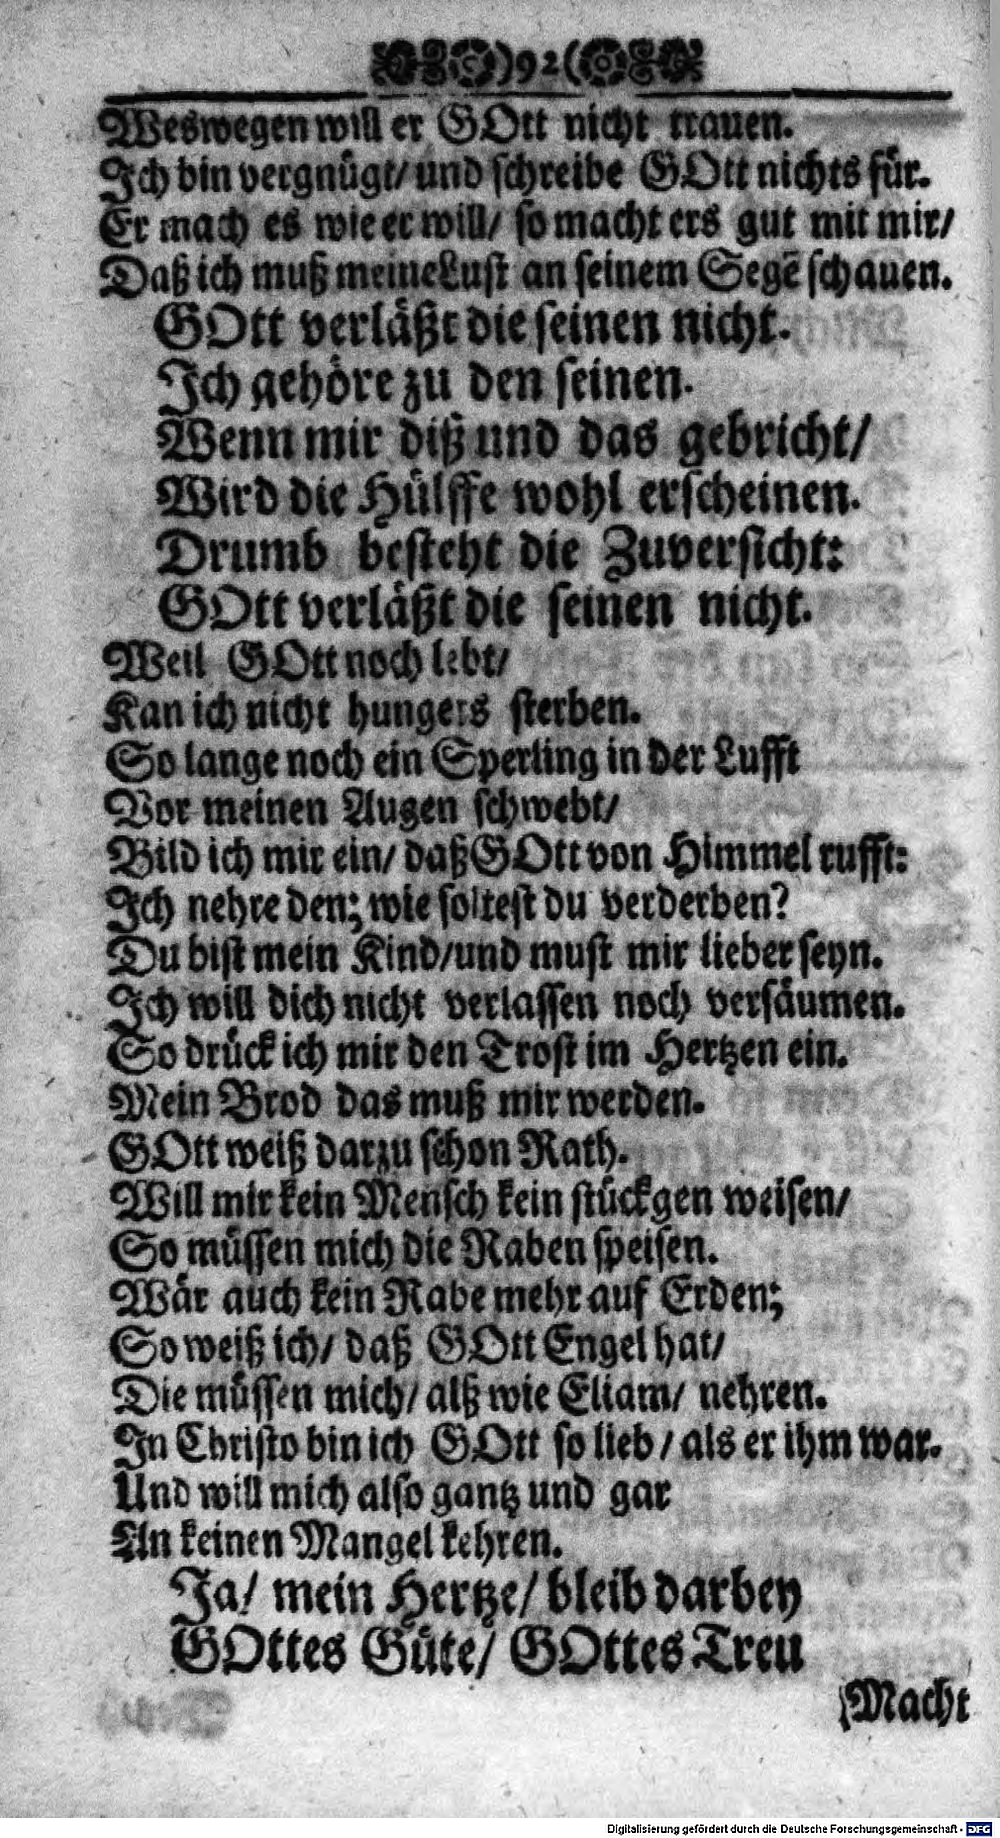 )92(
Weswegen will er GOtt nicht trauen.
Ich bin vergnügt/ und schreibe GOtt nichts für.
Er mach es wie er will/ so macht ers gut mit mir/
Daß ich muß meine Lust an seinem Segē schauen.
GOtt verläßt die seinen nicht.
Ich gehöre zu den seinen.
Wenn mir diß und das gebricht/
Wird die Hülffe wohl erscheinen.
Drumb besteht die Zuversicht:
GOtt verläßt die seinen nicht.
Weil GOtt noch lebt/
Kan ich nicht hungers sterben.
So lange noch ein Sperling in der Lufft
Vor meinen Augen schwebt/
Bild ich mir ein/ daß GOtt von Himmel rufft:
Ich nehre den; wie soltest du verderben?
Du bist mein Kind/und must mir lieber seyn.
Ich will dich nicht verlassen noch versäumen.
So drück ich mir den Trost im Hertzen ein.
Mein Brod das muß mir werden.
GOtt weiß darzu schon Rath.
Will mir kein Mensch kein stückgen weisen/
So müssen mich die Raben speisen.
Wär auch kein Rabe mehr auf Erden;
So weiß ich/ daß GOtt Engel hat/
Die müssen mich/ alß wie Eliam/ nehren.
In Christo bin ich GOtt so lieb/ als er ihm war.
Und will mich also gantz und gar
An keinen Mangel kehren.
Ja/ mein Hertze/ bleib darbey
GOttes Güte/ GOttes Treu
Macht
Digitalisierung gefördert durch die Deutsche Forschungsgemeinschaft - DFG